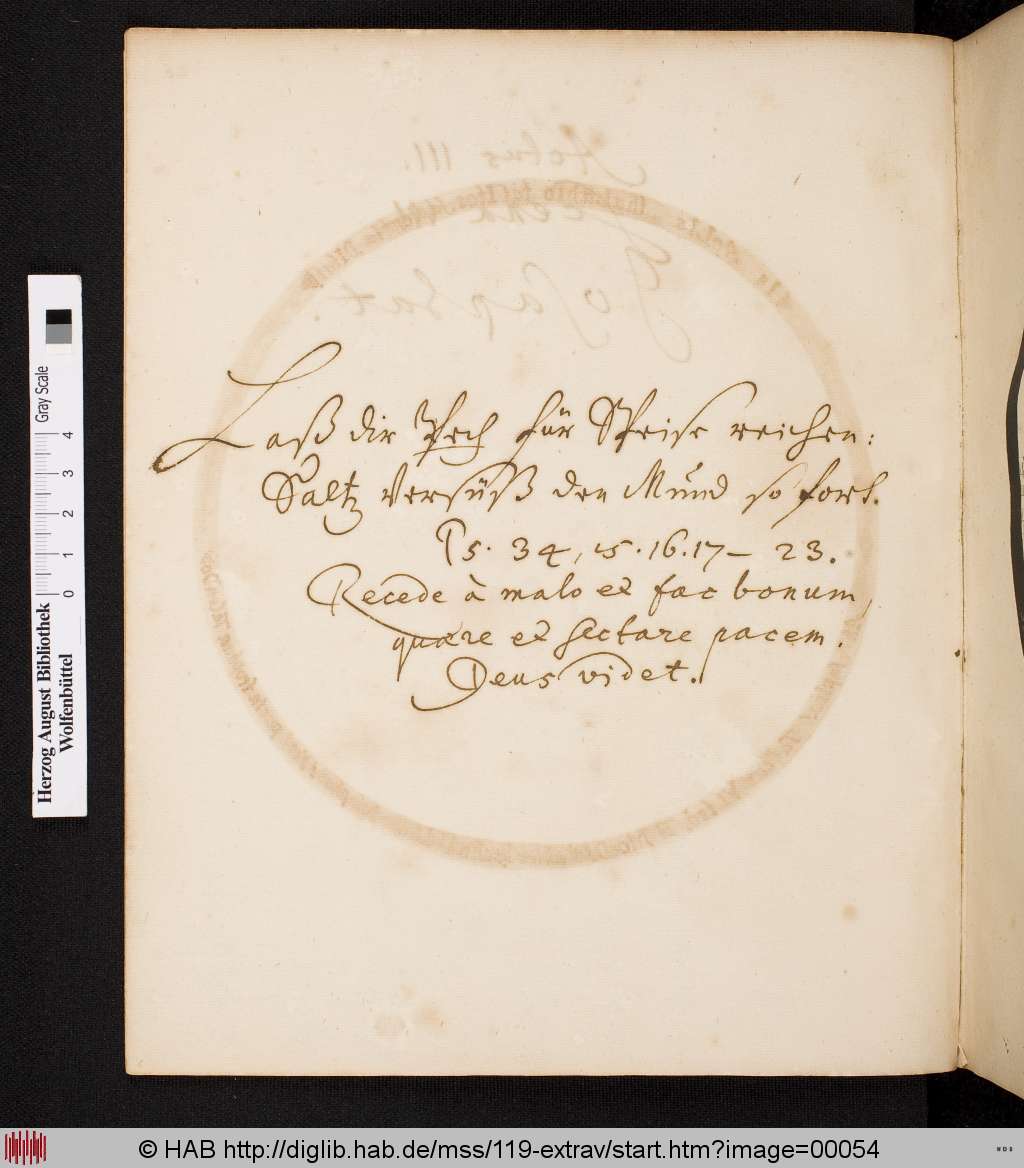 Laß dir Pech für Speise reichen:
Saltz versüß den Mund so fort.
Ps. 34, 15. 16. 17 – 23.
Recede à malo et fac bonum,
quære et sectare pacem.
Deus videt.
Herzog August Bibliothek
Wolfenbüttel
Gray Scale
0 1 2 3 4
© HAB http://diglib.hab.de/mss/119-extrav/start.htm?image=00054